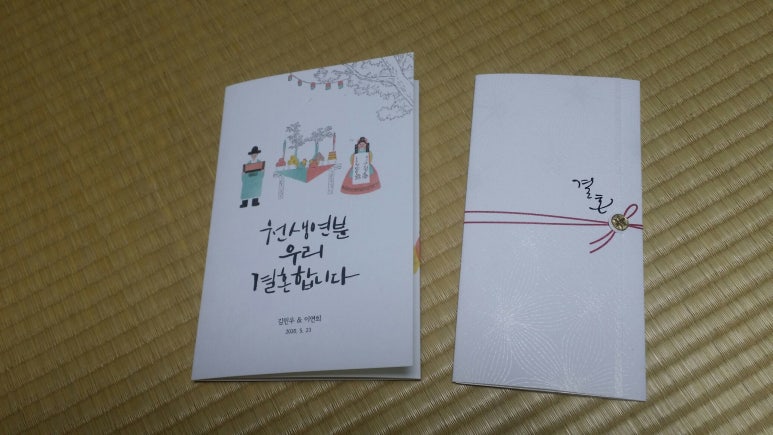 천생연분
우리
결혼합니다
김민우 & 이연희
2020. 5. 23
결
혼